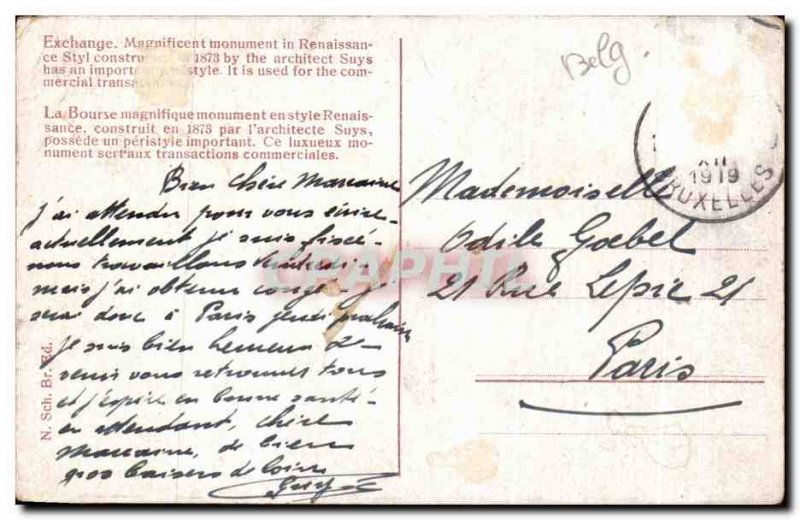 Exchange. Magnificent monument in Renaissan-
ce Styl constru 1873 by the architect Suys
has an import style. It is used for the com-
mercial transa
La Bourse magnifique monument en style Renais-
sance, construit en 1873 par l'architecte Suys,
possède un péristyle important. Ce luxueux mo-
nument sert aux transactions commerciales.
Bien chère Marraine
j'ai attendu pour vous écrire
actuellement je suis fixé
nous travaillons
mais j'ai obtenu congé je
serai donc à Paris jeudi prochain
je suis bien heureux de
venir vous retrouver tous
et j'espère en bonne santé
en attendant, chère
Marraine, de bien
gros baisers de loin
N. Sch. Br. Ed.
Belg.
1919
BRUXELLES
Mademoiselle
Odile Goebel
21 Rue Lepic 21
Paris